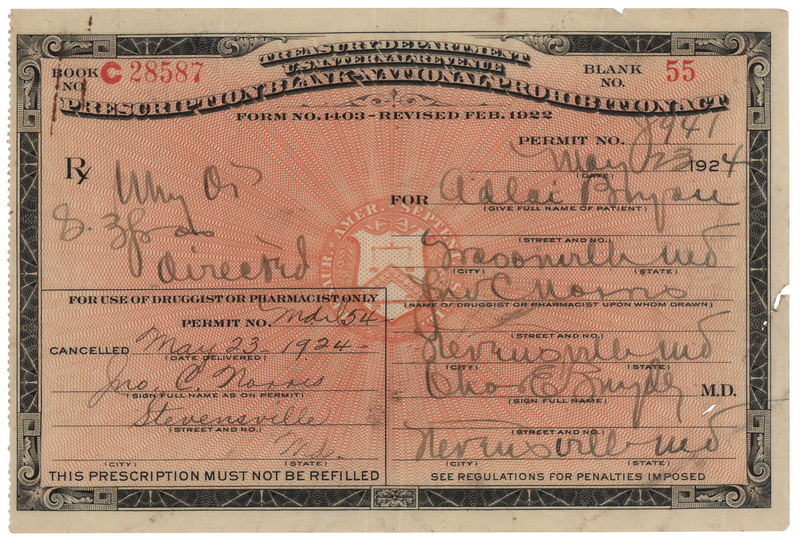 TREASURY DEPARTMENT
U.S. INTERNAL REVENUE
BOOK NO. C 28587
BLANK NO. 55
PRESCRIPTION BLANK-NATIONAL PROHIBITION ACT
FORM NO. 1403-REVISED FEB. 1922
PERMIT NO. 8941
May 23 1924
(DATE)
Rx
FOR Adlai Bryan
(GIVE FULL NAME OF PATIENT)
directed
(STREET AND NO.)
Md
(CITY) (STATE)
Jno C Norris
(NAME OF DRUGGIST OR PHARMACIST UPON WHOM DRAWN)
(STREET AND NO.)
Stevensville Md
(CITY) (STATE)
Chas E M.D.
(SIGN FULL NAME)
(STREET AND NO.)
Stevensville Md
(CITY) (STATE)
SEE REGULATIONS FOR PENALTIES IMPOSED
FOR USE OF DRUGGIST OR PHARMACIST ONLY
PERMIT NO. 54
CANCELLED May 23. 1924-
(DATE DELIVERED)
Jno. C. Norris
(SIGN FULL NAME AS ON PERMIT)
Stevensville
(STREET AND NO.)
Md.
(CITY) (STATE)
THIS PRESCRIPTION MUST NOT BE REFILLED